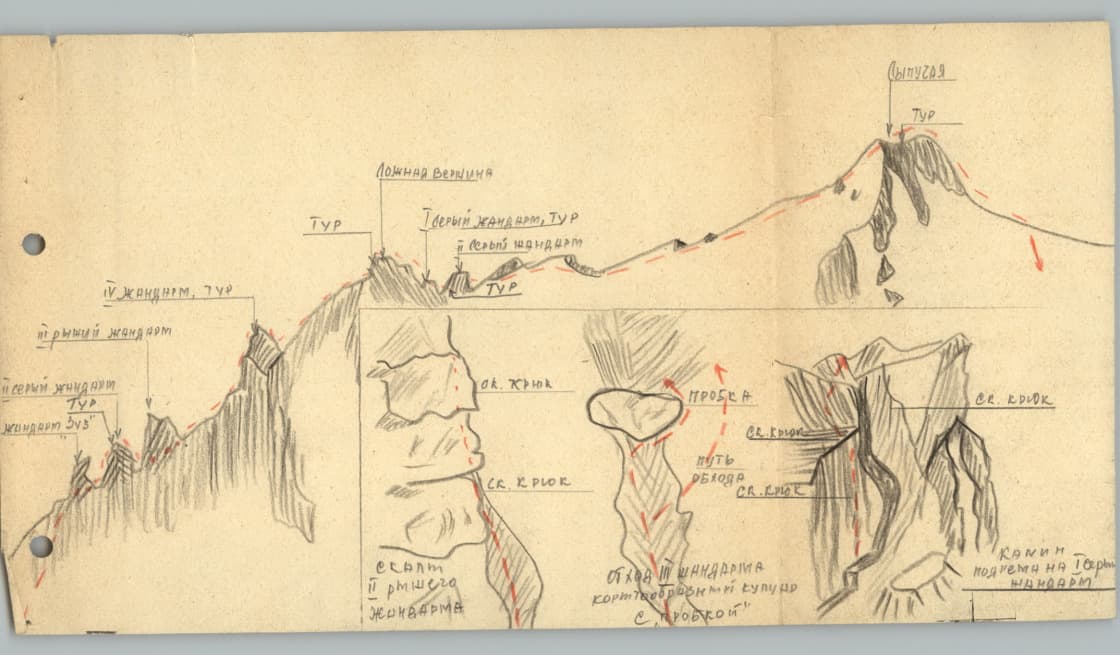 Сыпучая
ТУР
Ложная вершина
ТУР
I серый жандарм, ТУР
II серый жандарм
ТУР
IV жандарм, ТУР
III рыжий жандарм
II серый жандарм
ТУР
жандарм „Зуб"
ск. крюк
ск. крюк
пробка
путь
обхода
ск. крюк
ск. крюк
ск. крюк
скалы
II рыжего
жандарма
обход III жандарма
с „пробкой"
камин
подъема на I серый
жандарм